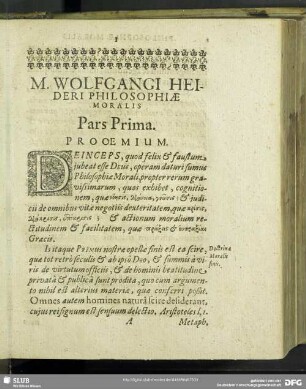 1
M. WOLFGANGI HEI-
DERI PHILOSOPHIÆ
MORALIS
Pars Prima.
PROOEMIUM.
DEINCEPS, quod felix & faustum
jubeat esse Deus, operam daturi sumus
Philosophiæ Morali, propter rerum gra-
vissimarum, quas exhibet, cognitio-
nem, & judi-
cii de omnibus vitæ negotiis dexteritatem, quæ
& actionum moralium re-
ctitudinem & facilitatem, quæ
Græcis.
Is itaque PRIMUS nostræ operæ finis est ea scire,
quæ tot retrò seculis & ab ipso Deo, & summis à vi-
ris de virtutum officiis, & de hominis beatitudine,
privatâ & publicâ sunt prodita, quo cum argumen-
to nihil est alterius materiæ, quæ conferri possit.
Omnes autem homines naturâ scire desiderant,
cujus rei signum est sensuum delectio, Aristoteles l. 1.
A Metaph.
Doctrinæ
Moralis
finis.
SLUB
Wir führen Wissen.
DFG